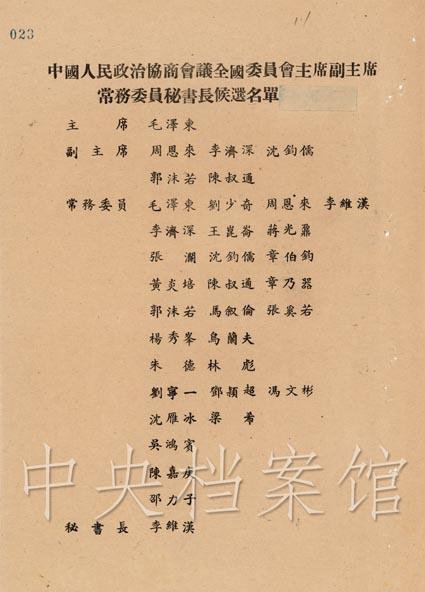 023
中國人民政治協商會議全國委員會主席副主席
常務委員秘書長候選名單
主席 毛澤東
副主席 周恩來 李濟深 沈鈞儒
郭沫若 陳叔通
常務委員 毛澤東 劉少奇 周恩來 李維漢
李濟深 王崑崙 蔣光鼐
張瀾 沈鈞儒 章伯鈞
黃炎培 陳叔通 章乃器
郭沫若 馬叙倫 張奚若
楊秀峯 烏蘭夫
朱德 林彪
劉寧一 鄧穎超 馮文彬
沈雁冰 梁希
吳鴻賓
陳嘉庚
邵力子
秘書長 李維漢
中央档案馆